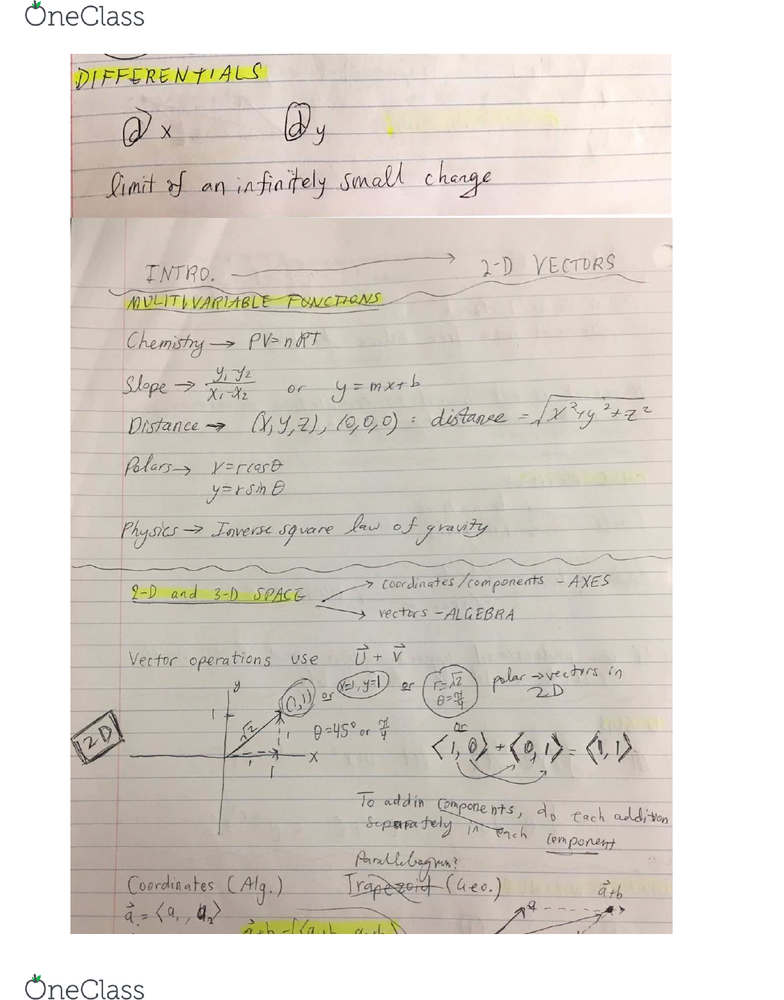 OneClass
DIFFERENTIALS
dx dy
limit of an infinitely small change
INTRO. → 2-D VECTORS
MULITIVARIABLE FUNCTIONS
Chemistry → PV=nRT
Slope → y₁-y₂/x₁-x₂ or y=mx+b
Distance → (X,Y,Z), (0,0,0) : distance = √x²+y²+z²
Polars → x=rcosθ
y=rsinθ
Physics → Inverse square law of gravity
2-D and 3-D SPACE → coordinates/components - AXES
→ vectors - ALGEBRA
Vector operations use U⃗ + V⃗
2D
y
1
(1,1) or x=1, y=1 or r=√2
θ=π/4
polar → vectors in
2D
√2
1
θ=45° or π/4
1
1
x
or
⟨1,0⟩ + ⟨0,1⟩ = ⟨1,1⟩
To add in components, do each addition
separately in each component
Parallelogram?
Coordinates (Alg.) Trapezoid (Geo.)
a⃗ = ⟨a₁, a₂⟩
a
a⃗+b
OneClass